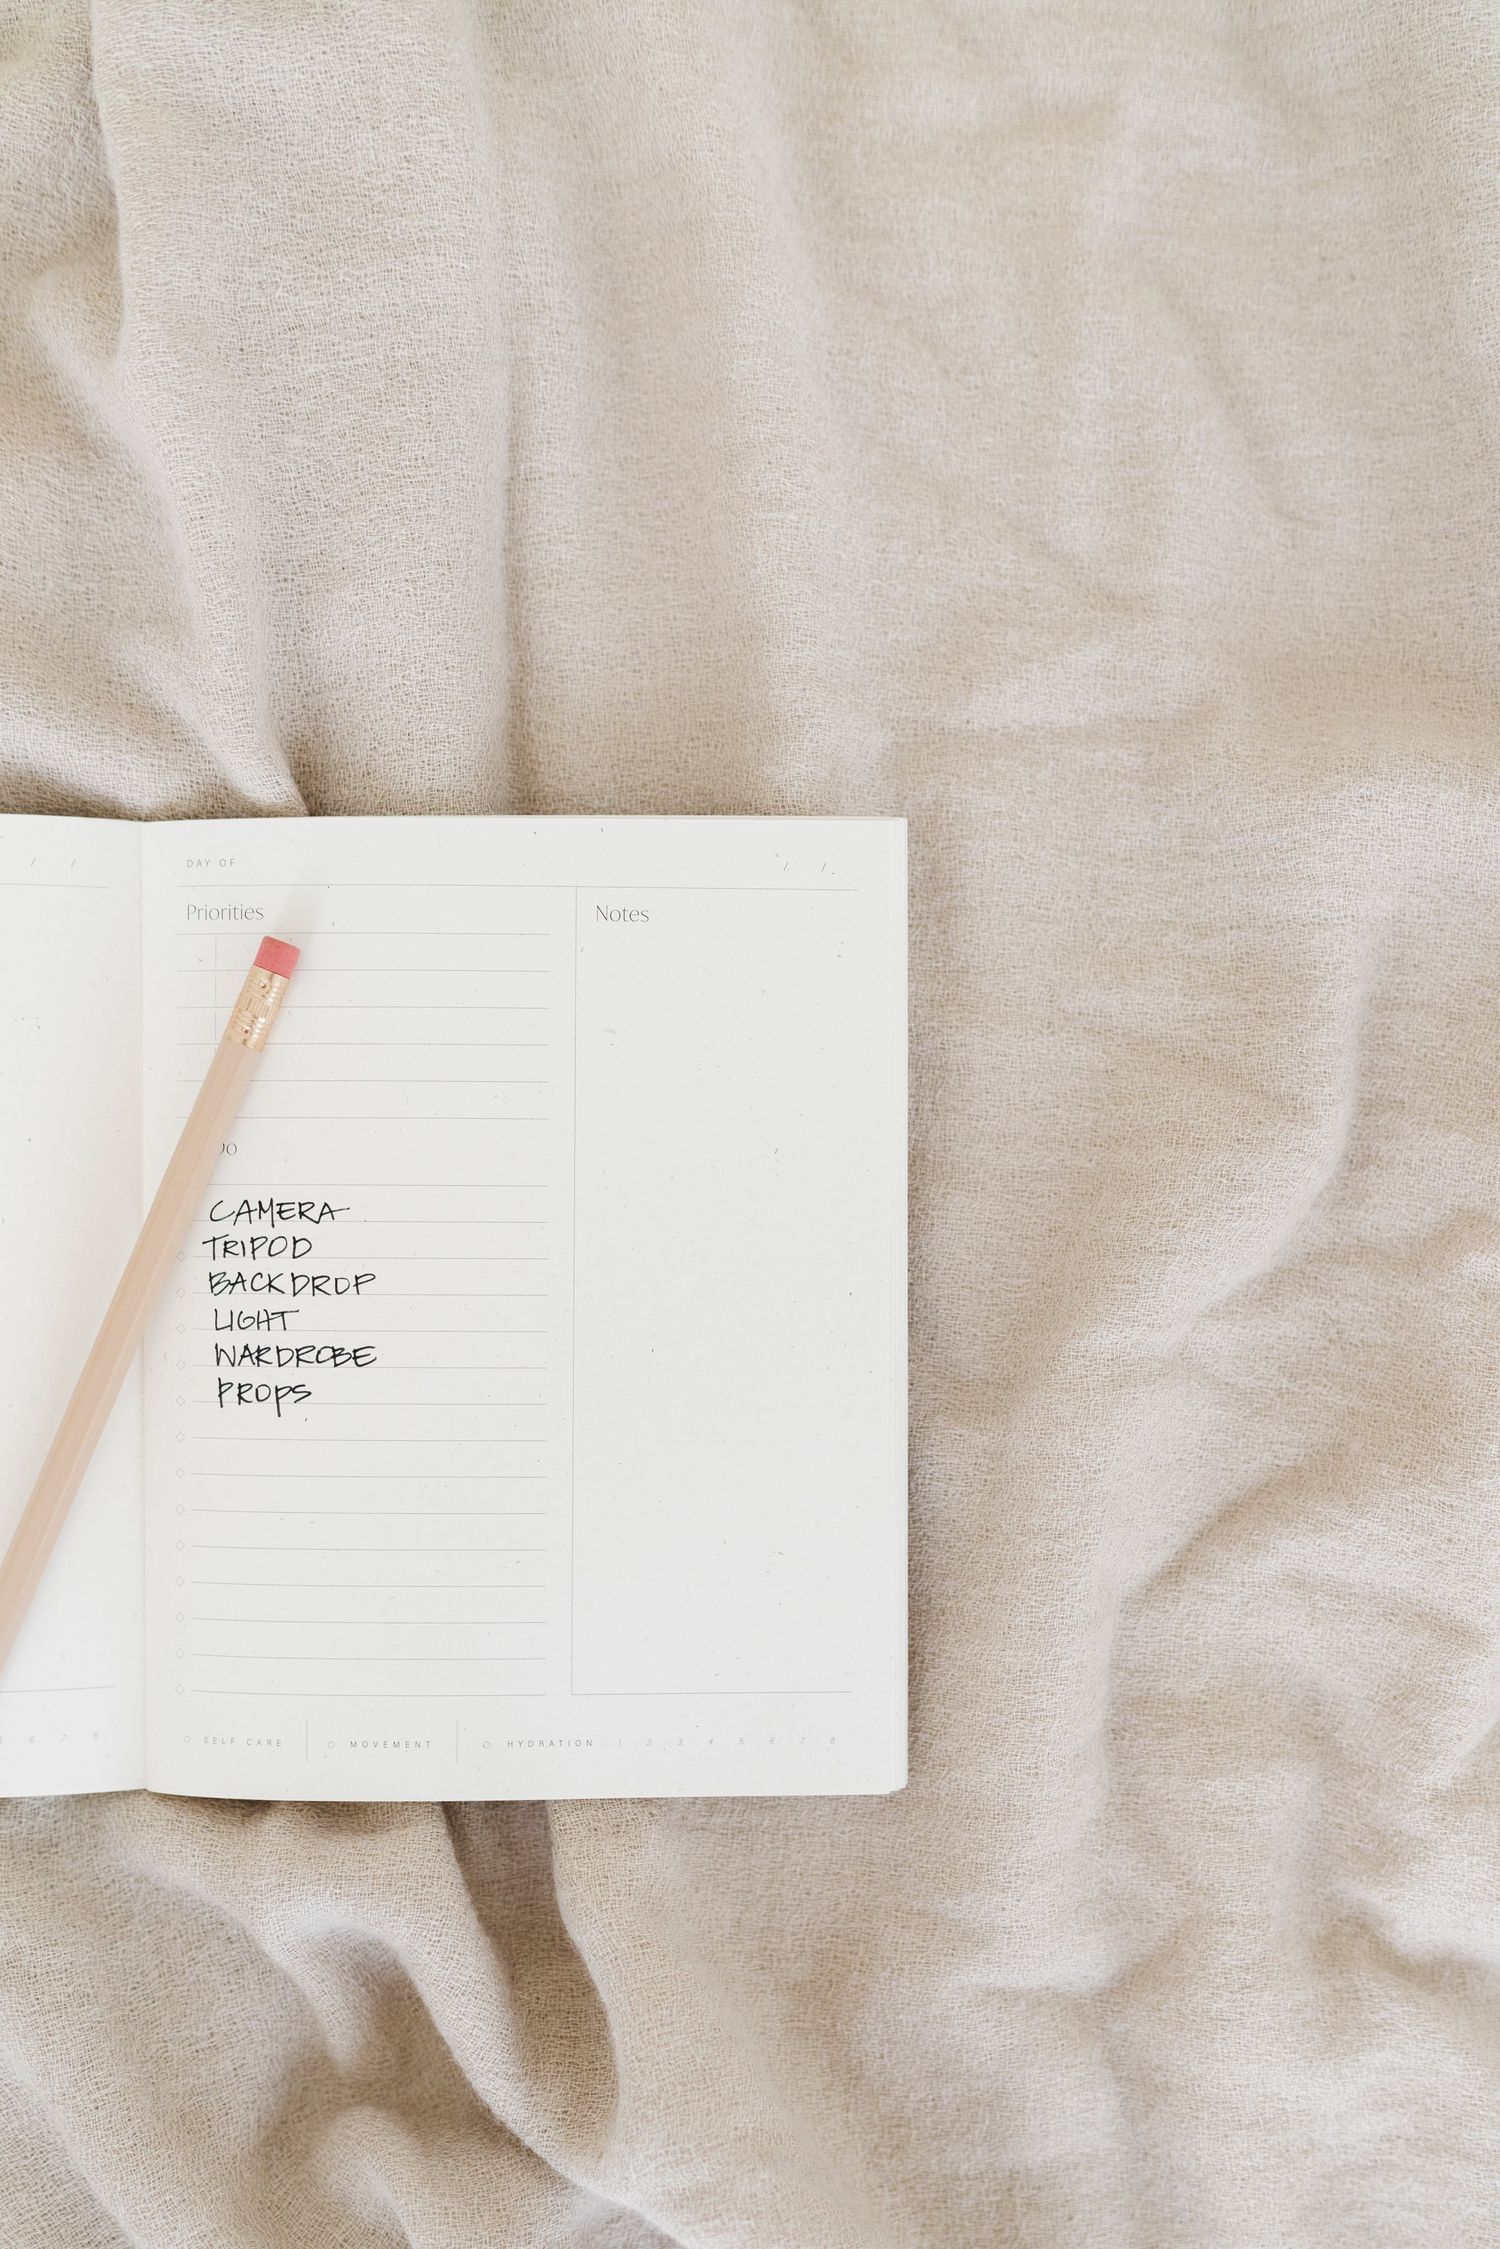 DAY OF / /
Priorities
Notes
CAMERA
TRIPOD
BACKDROP
LIGHT
WARDROBE
PROPS
SELF CARE MOVEMENT HYDRATION 1 2 3 4 5 6 7 8
6 7 8